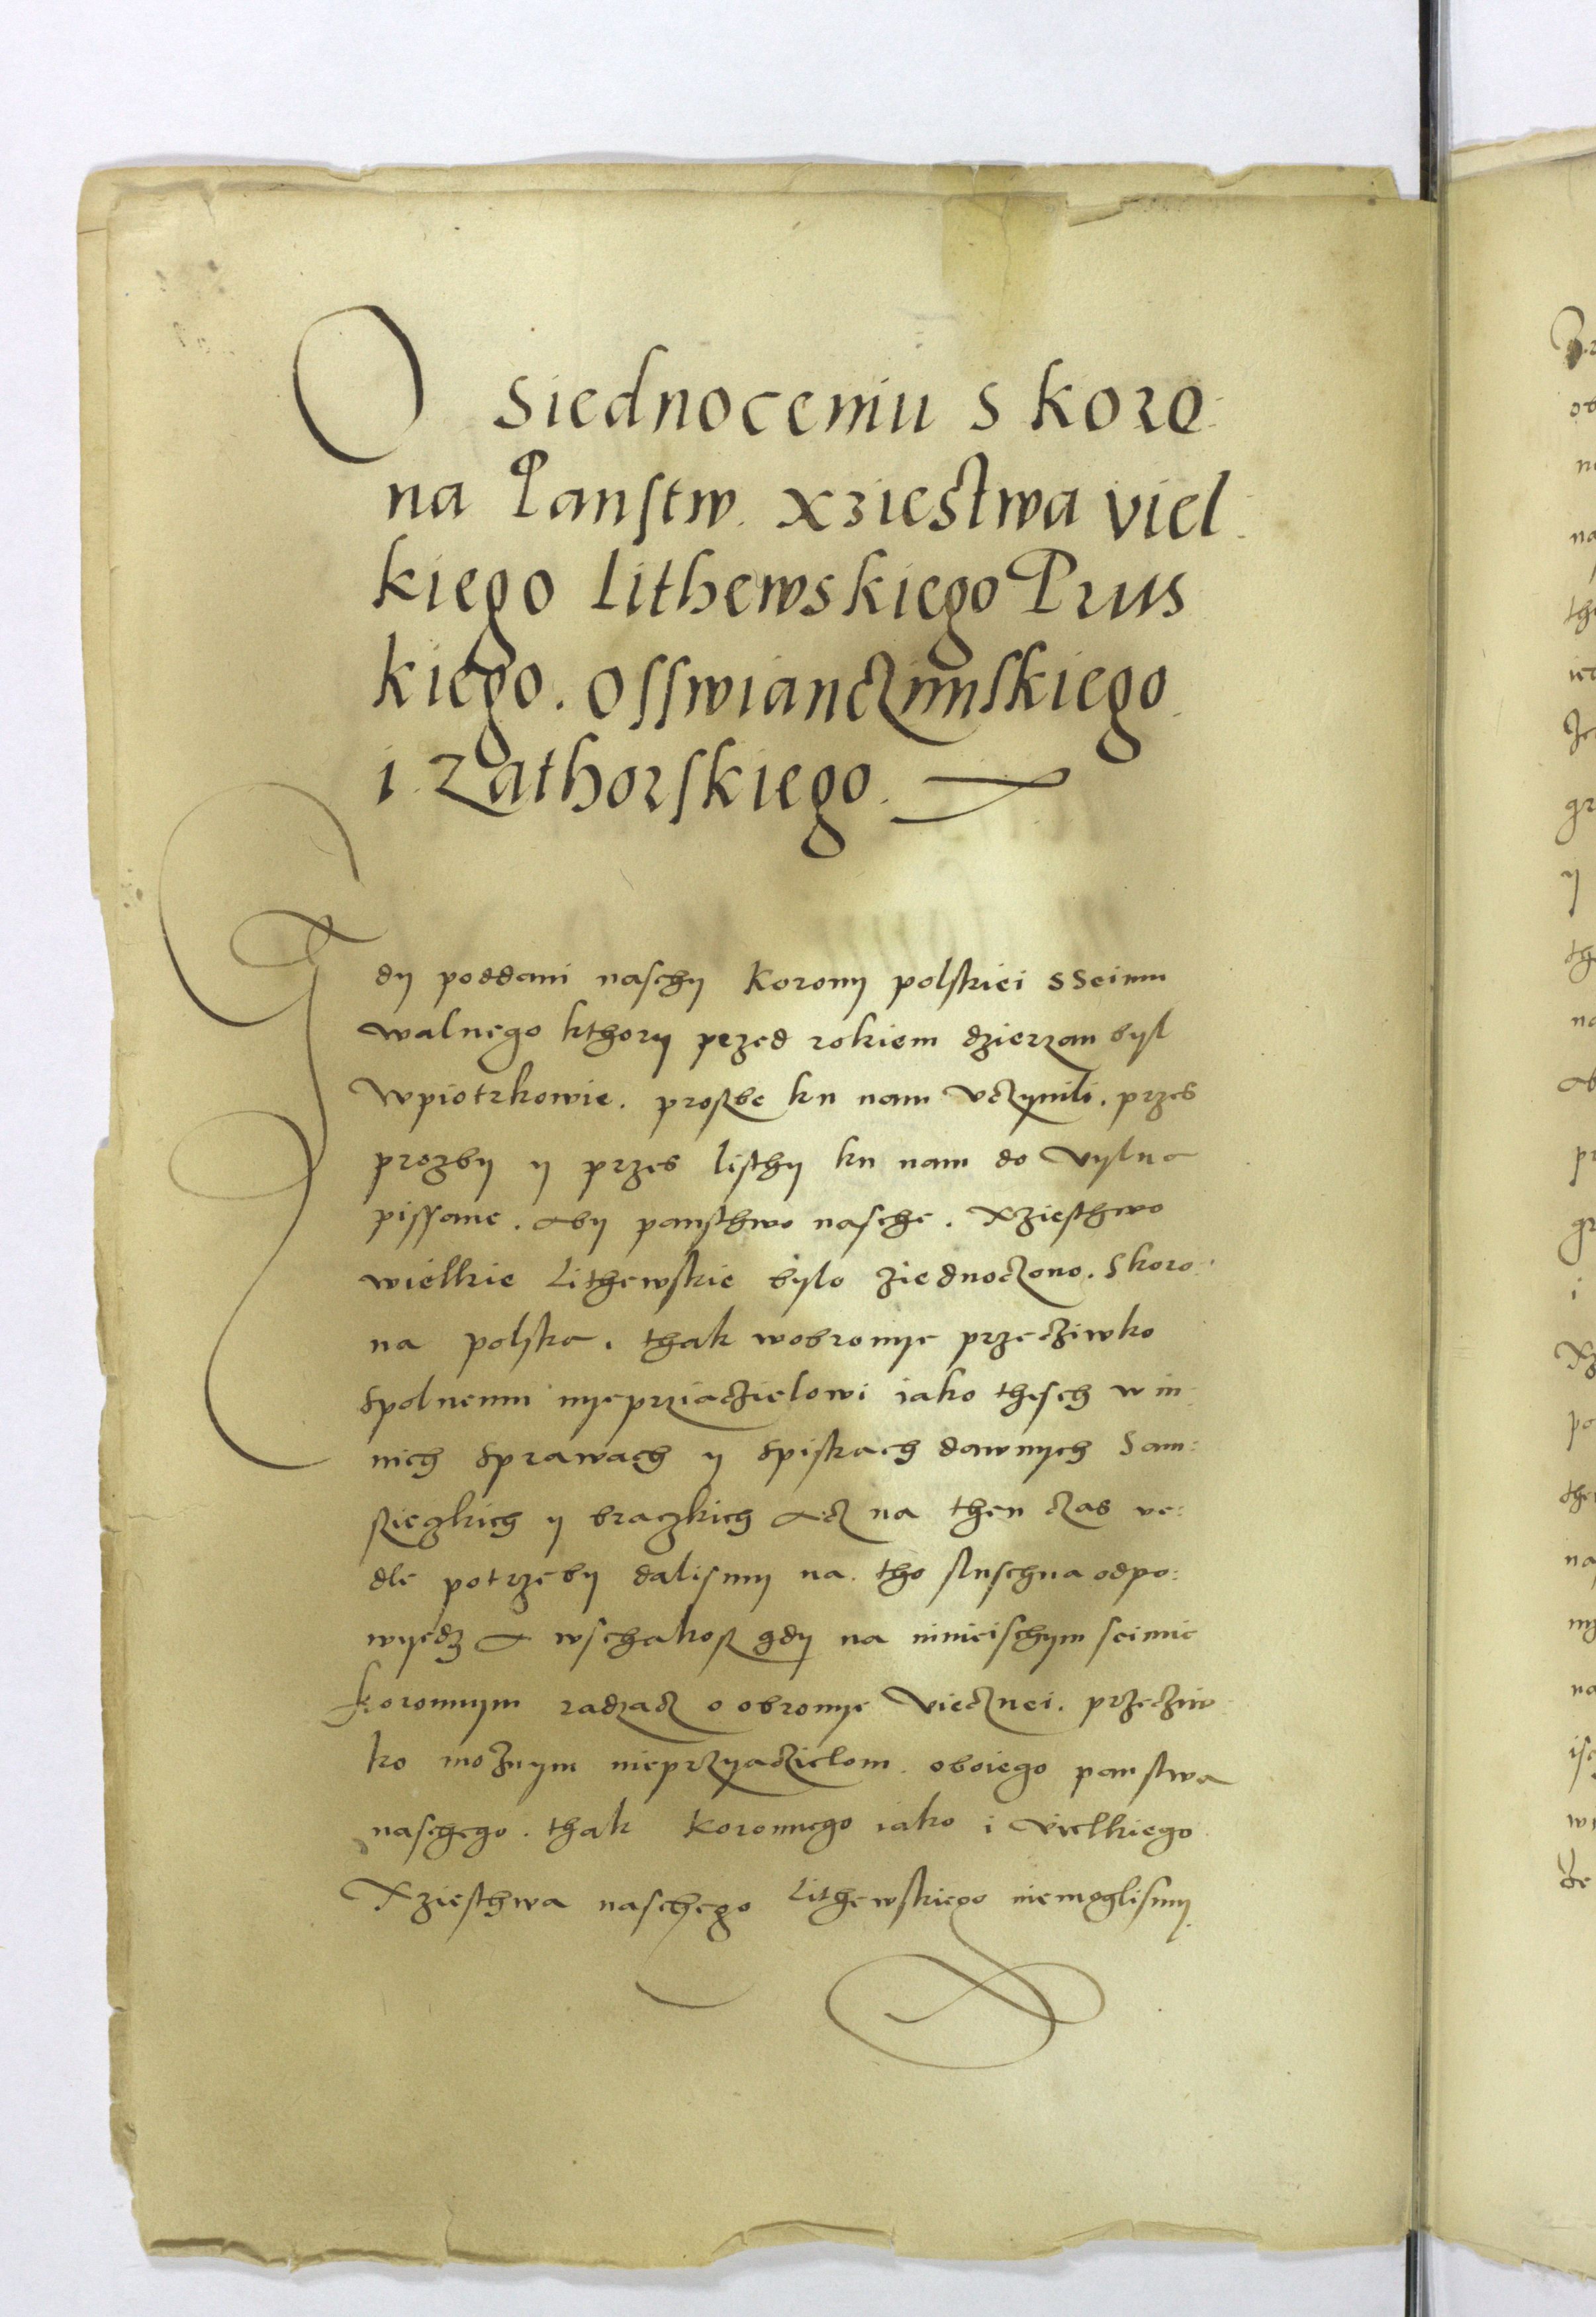 O siednoceniu s koro-
na Panstw. Xziestwa viel-
kiego Lithewskiego Prus
kiego. Osswianczimskiego
i Zathorskiego.
Gdy poddani naschy Korony polskiei s Seimu
walnego kthory przed rokiem dzierzan byl
w piotrkowie. prosbe ku nam uczynili. przes
prozby y przes listhy ku nam do Vylna
pissane. aby pansthwo nasche. Xziesthwo
wielkie Lithewskie bylo ziednoczono. s koro-
na polska. thak w obronye przecziwko
spolnemu nyeprziaczielowi iako thesch w in-
nich sprawach y spiskach dawnych Sam-
sieczkich y braczkich acz na then czas ve-
dle potrzeby dalismy na tho sluschna odpo-
wyedz a wschakosz gdy na ninieischym seimie
koronnym radzacz o obronye viecznei. przecziw-
ko moznym nieprzyaczielom oboiego panstwa
naschego. thak koronnego iako i vielkiego
Xziesthwa naschego Lithewskiego niemoglismy